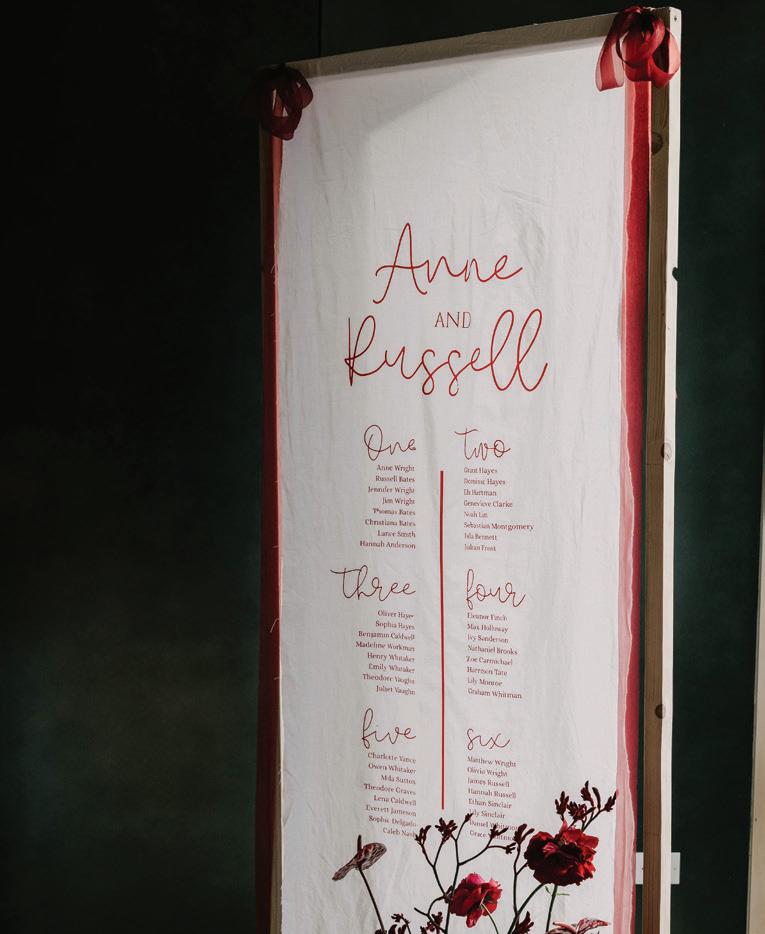 Anne
AND
Russell
One
Anne Wright
Russell Bates
Jennifer Wright
Jim Wright
Thomas Bates
Christiana Bates
Lance Smith
Hannah Anderson
two
Grant Hayes
Dominic Hayes
Eli Hartman
Genevieve Clarke
Noah Lin
Sebastian Montgomery
Isla Bennett
Julian Frost
three
Oliver Hayes
Sophia Hayes
Benjamin Caldwell
Madeline Workman
Henry Whitaker
Emily Whitaker
Theodore Vaughn
Juliet Vaughn
four
Eleanor Finch
Max Holloway
Ivy Sanderson
Nathaniel Brooks
Zoe Carmichael
Harrison Tate
Lily Monroe
Graham Whitman
five
Charlotte Vance
Owen Whitaker
Mila Sutton
Theodore Graves
Lena Caldwell
Everett Jameson
Sophie Delgado
Caleb Nash
six
Matthew Wright
Olivia Wright
James Russell
Hannah Russell
Ethan Sinclair
Lily Sinclair
Daniel Whitmore
Grace Whitmore